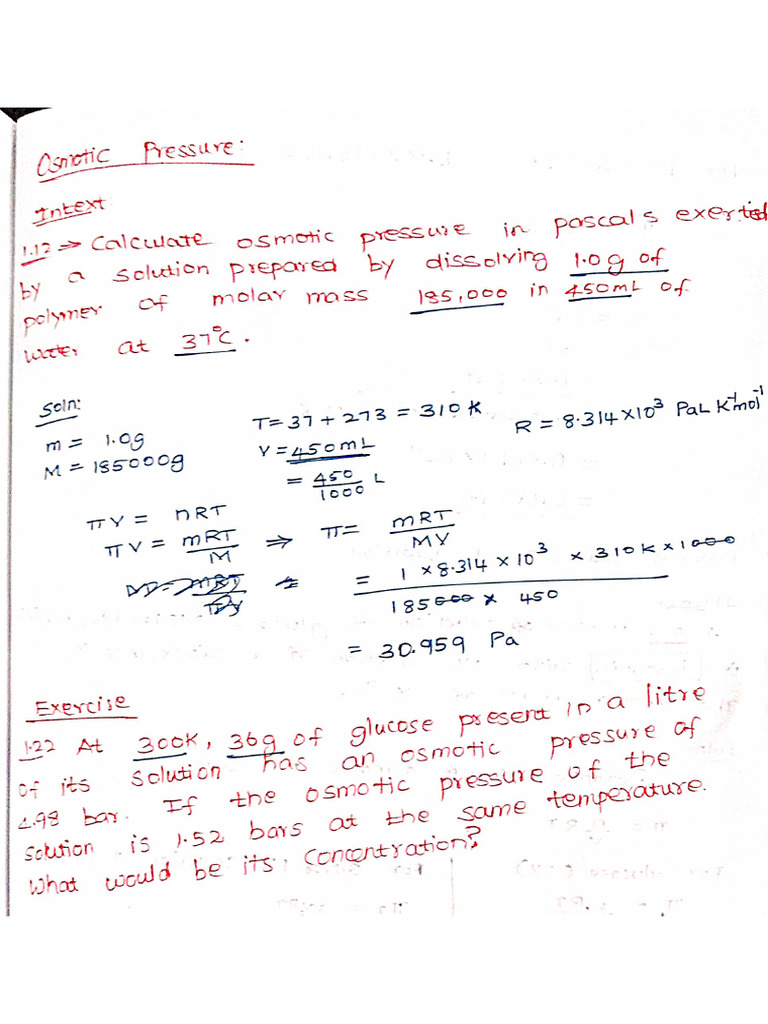 Osmotic Pressure:
Intext
1.12 ⇒ Calculate osmotic pressure in pascals exerted
by a solution prepared by dissolving 1.0g of
polymer of molar mass 185,000 in 450mL of
water at 37°C.
Soln:
m = 1.0g
M = 185000g
T = 37 + 273 = 310K
V = 450mL
= 450/1000 L
R = 8.314×10³ PaL K⁻¹mol⁻¹
πV = nRT
πV = mRT/M ⇒ π = mRT/MV
= 1 × 8.314 × 10³ × 310K × 1000 / 185000 × 450
= 30.959 Pa
Exercise
1.22 At 300K, 36g of glucose present in a litre
of its solution has an osmotic pressure of
4.98 bar. If the osmotic pressure of the
solution is 1.52 bars at the same temperature.
What would be its concentration?